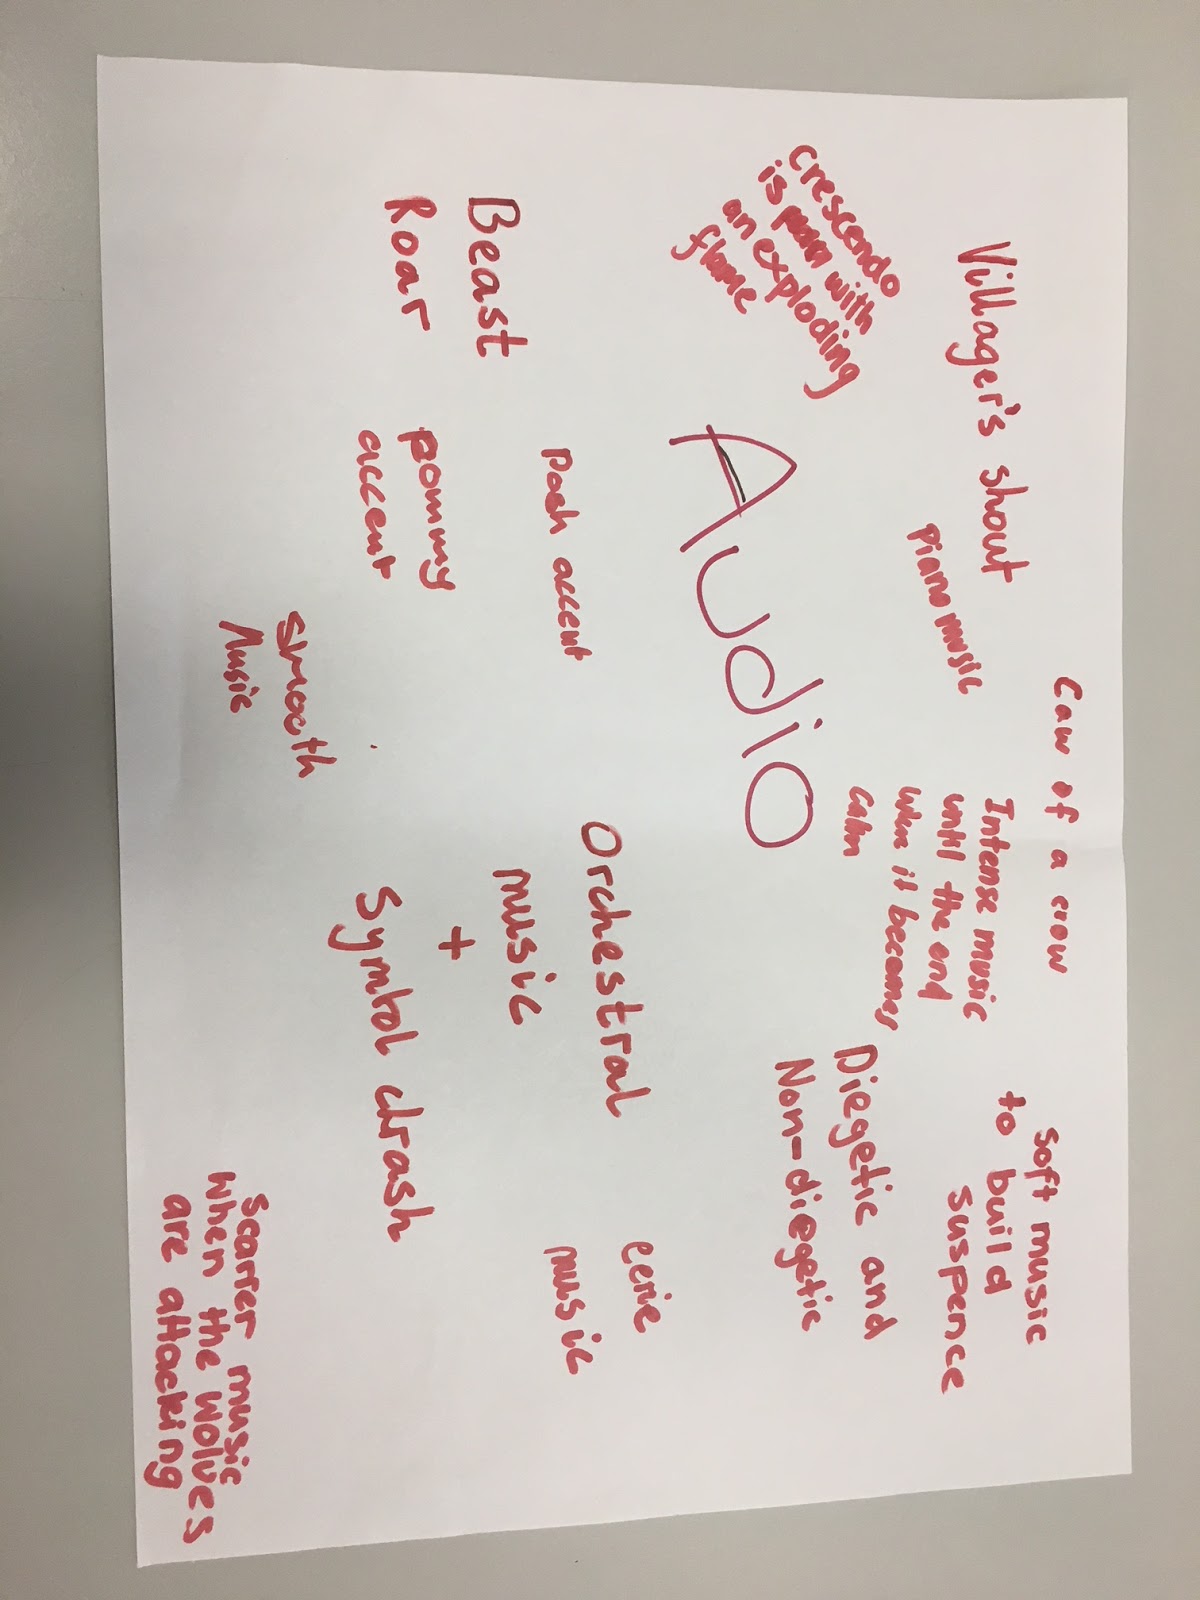 Villager's shout
Caw of a crow
soft music
to build
suspence
crescendo
is with
an exploding
flame
Piano music
Intense music
until the end
when it becomes
calm
Audio
Diegetic and
Non-diegetic
Beast
Roar
Posh accent
Orchestral
music
+
Symbol chrash
eerie
music
pommy
accent
Smooth
Music
Scarrer music
when the wolves
are attacking